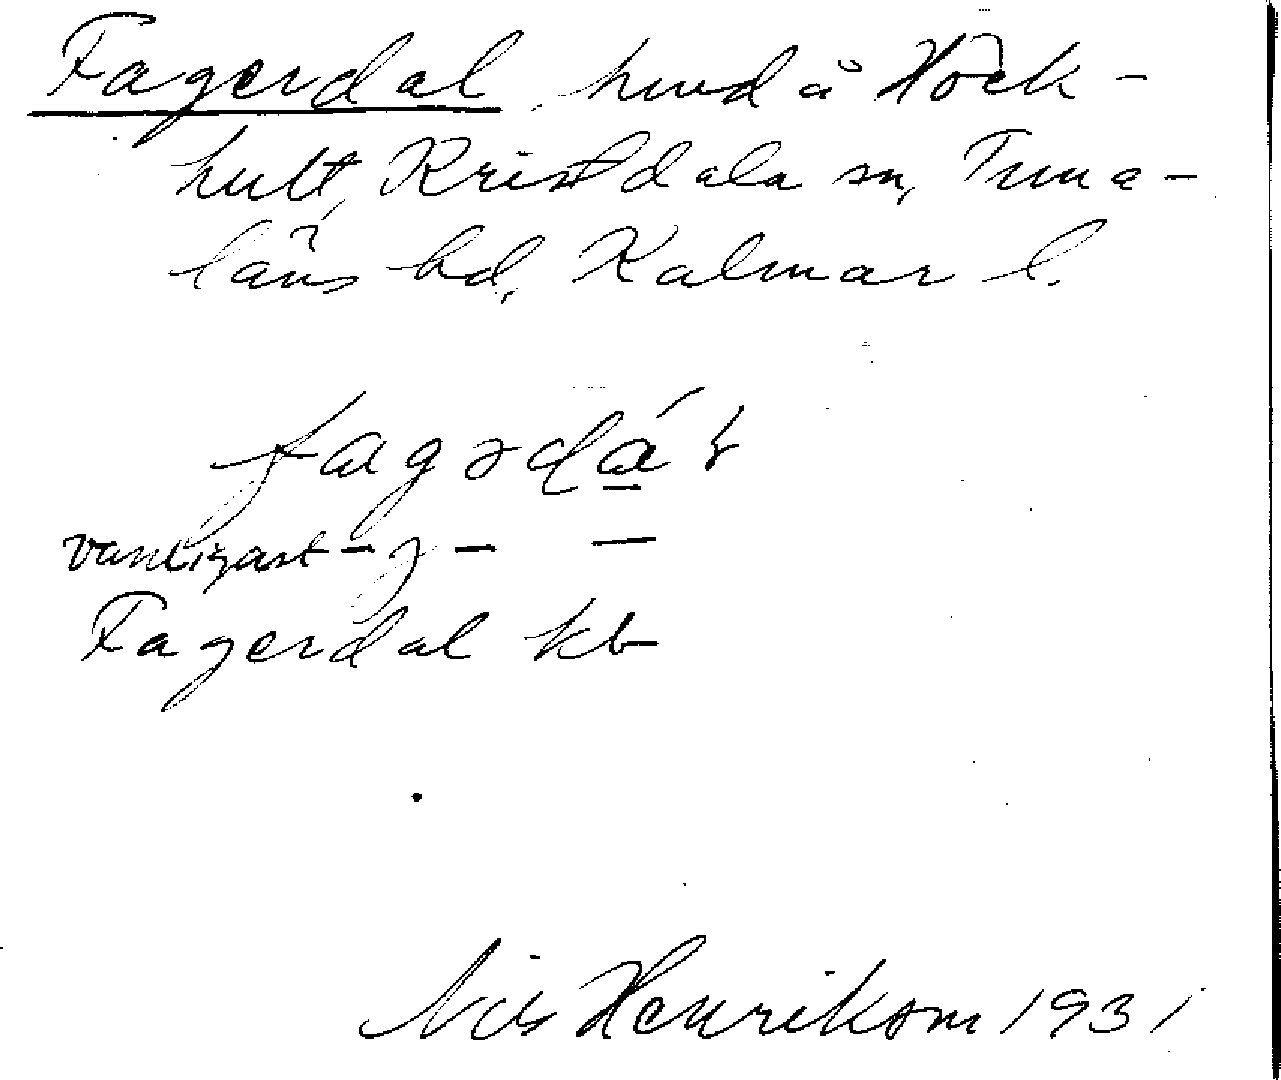 Fagerdal, hmd å Höck-
hult, Kristdala sn, Tuna-
läns hd, Kalmar l.
fagərdá̱ɫ
vanligast - ȝ - —
Fagerdal kb
Nils Henrikson 1931